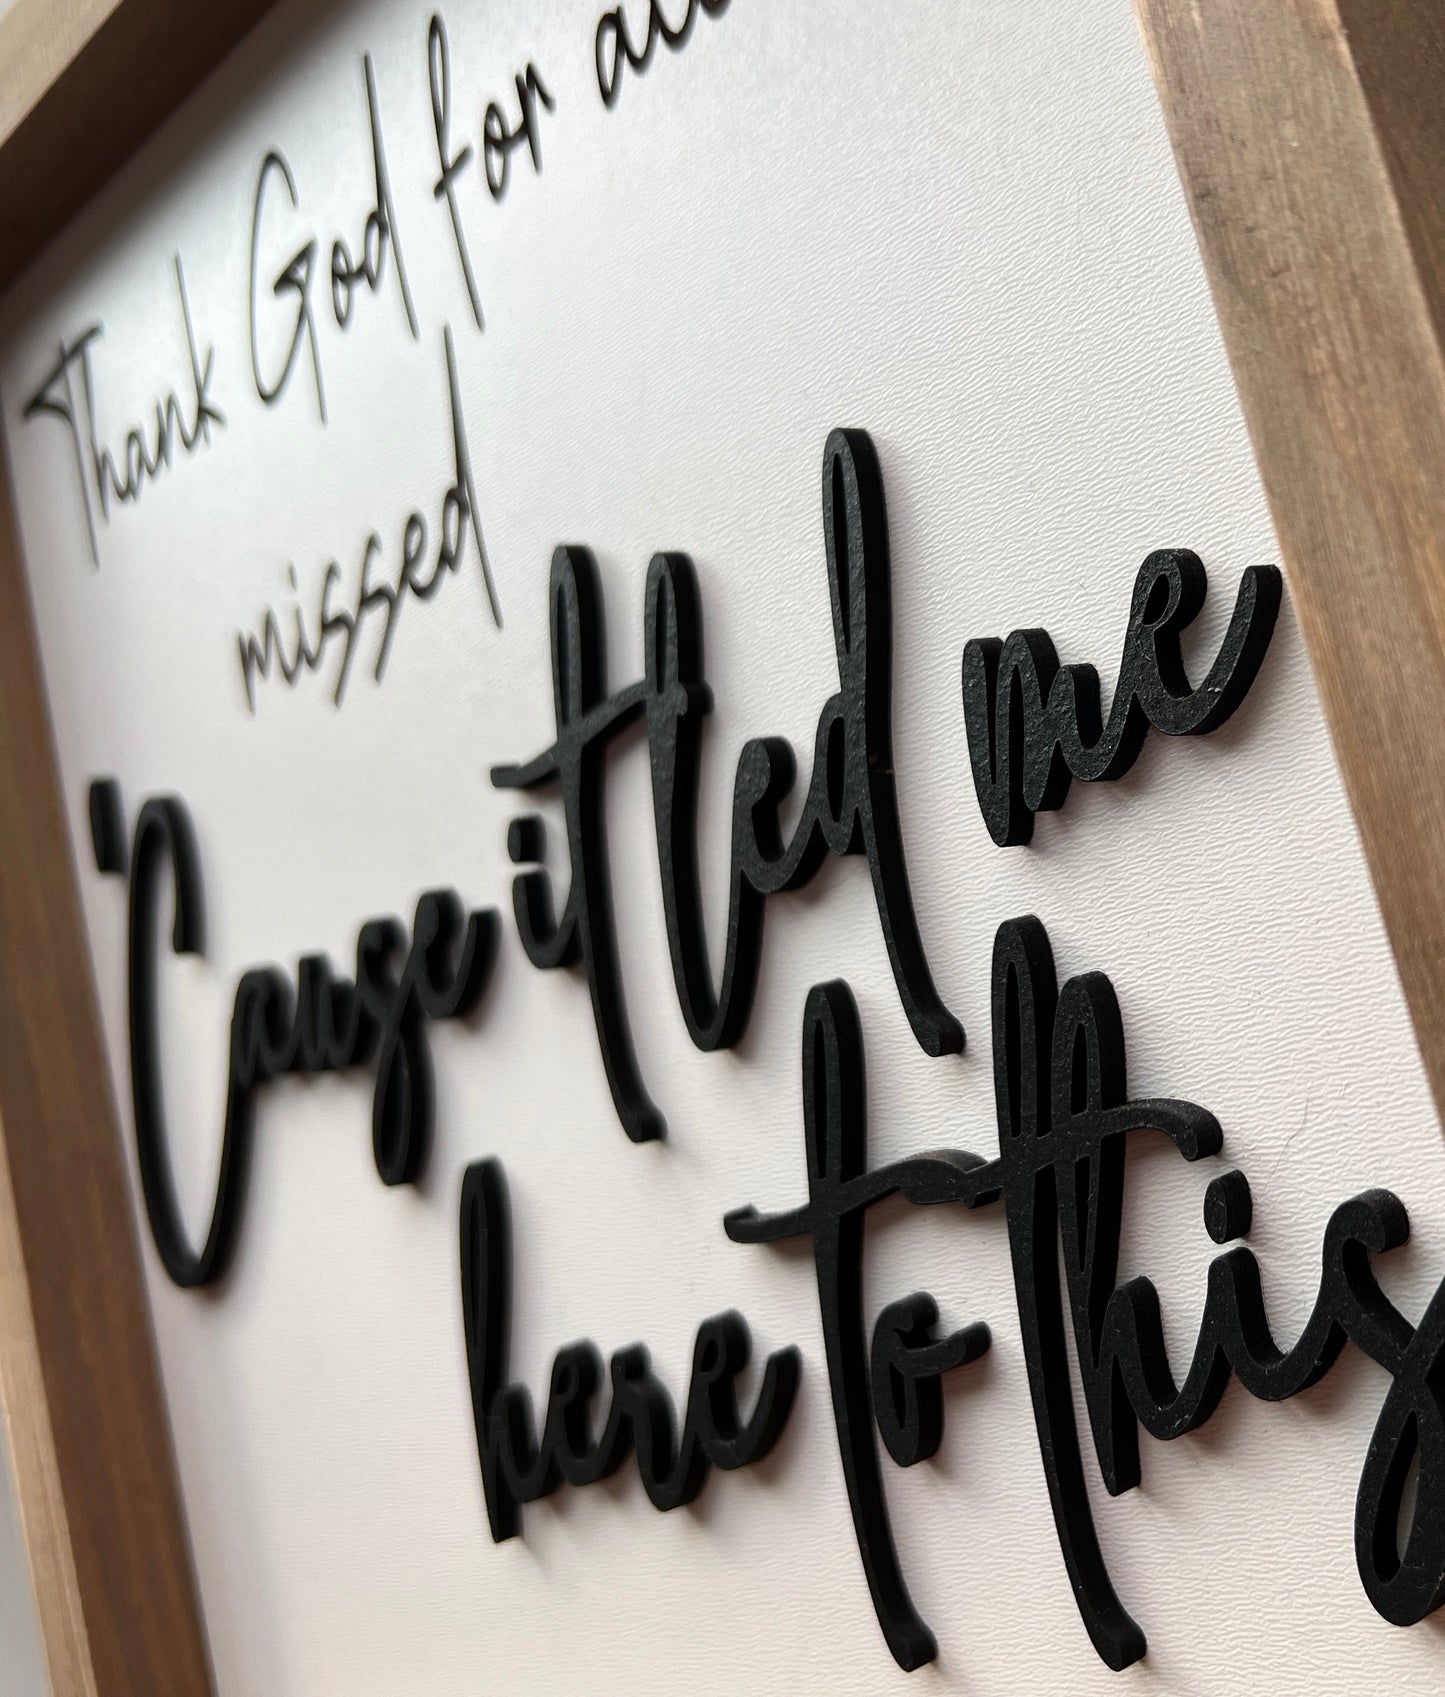 Thank God for all
missed
'Cause it led me
here to this